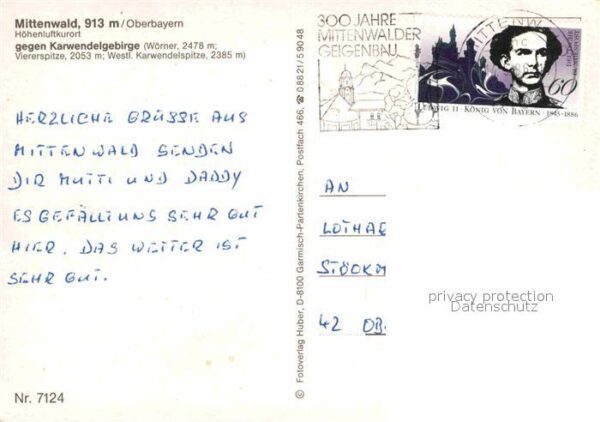 Mittenwald, 913 m/Oberbayern
Höhenluftkurort
gegen Karwendelgebirge (Wörner, 2478 m;
Viererspitze, 2053 m; Westl. Karwendelspitze, 2385 m)
HERZLICHE GRÜSSE AUS
MITTENWALD SENDEN
DIR MUTTI UND DADDY
ES GEFÄLLT UNS SEHR GUT
HIER. DAS WETTER IST
SEHR GUT.
Nr. 7124
© Fotoverlag Huber, D-8100 Garmisch-Partenkirchen, Postfach 466, ☎ 08821/59048
300 JAHRE
MITTENWALDER
GEIGENBAU
MITTENW
60
LUDWIG II · KÖNIG VON BAYERN 1845-1886
AN
LOTHAR
STÖCKM
42 OB
privacy protection
Datenschutz